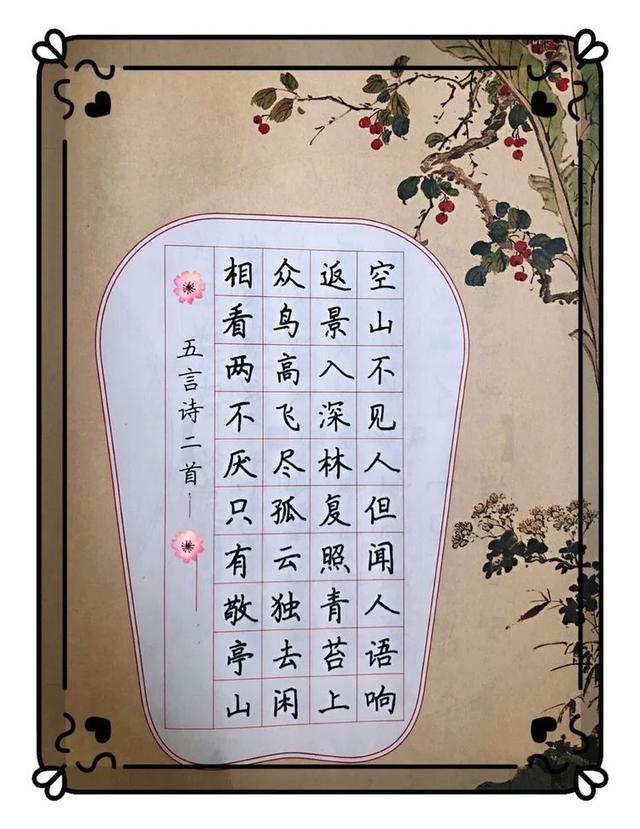 空山不见人但闻人语响
返景入深林复照青苔上
众鸟高飞尽孤云独去闲
相看两不厌只有敬亭山
五言诗二首